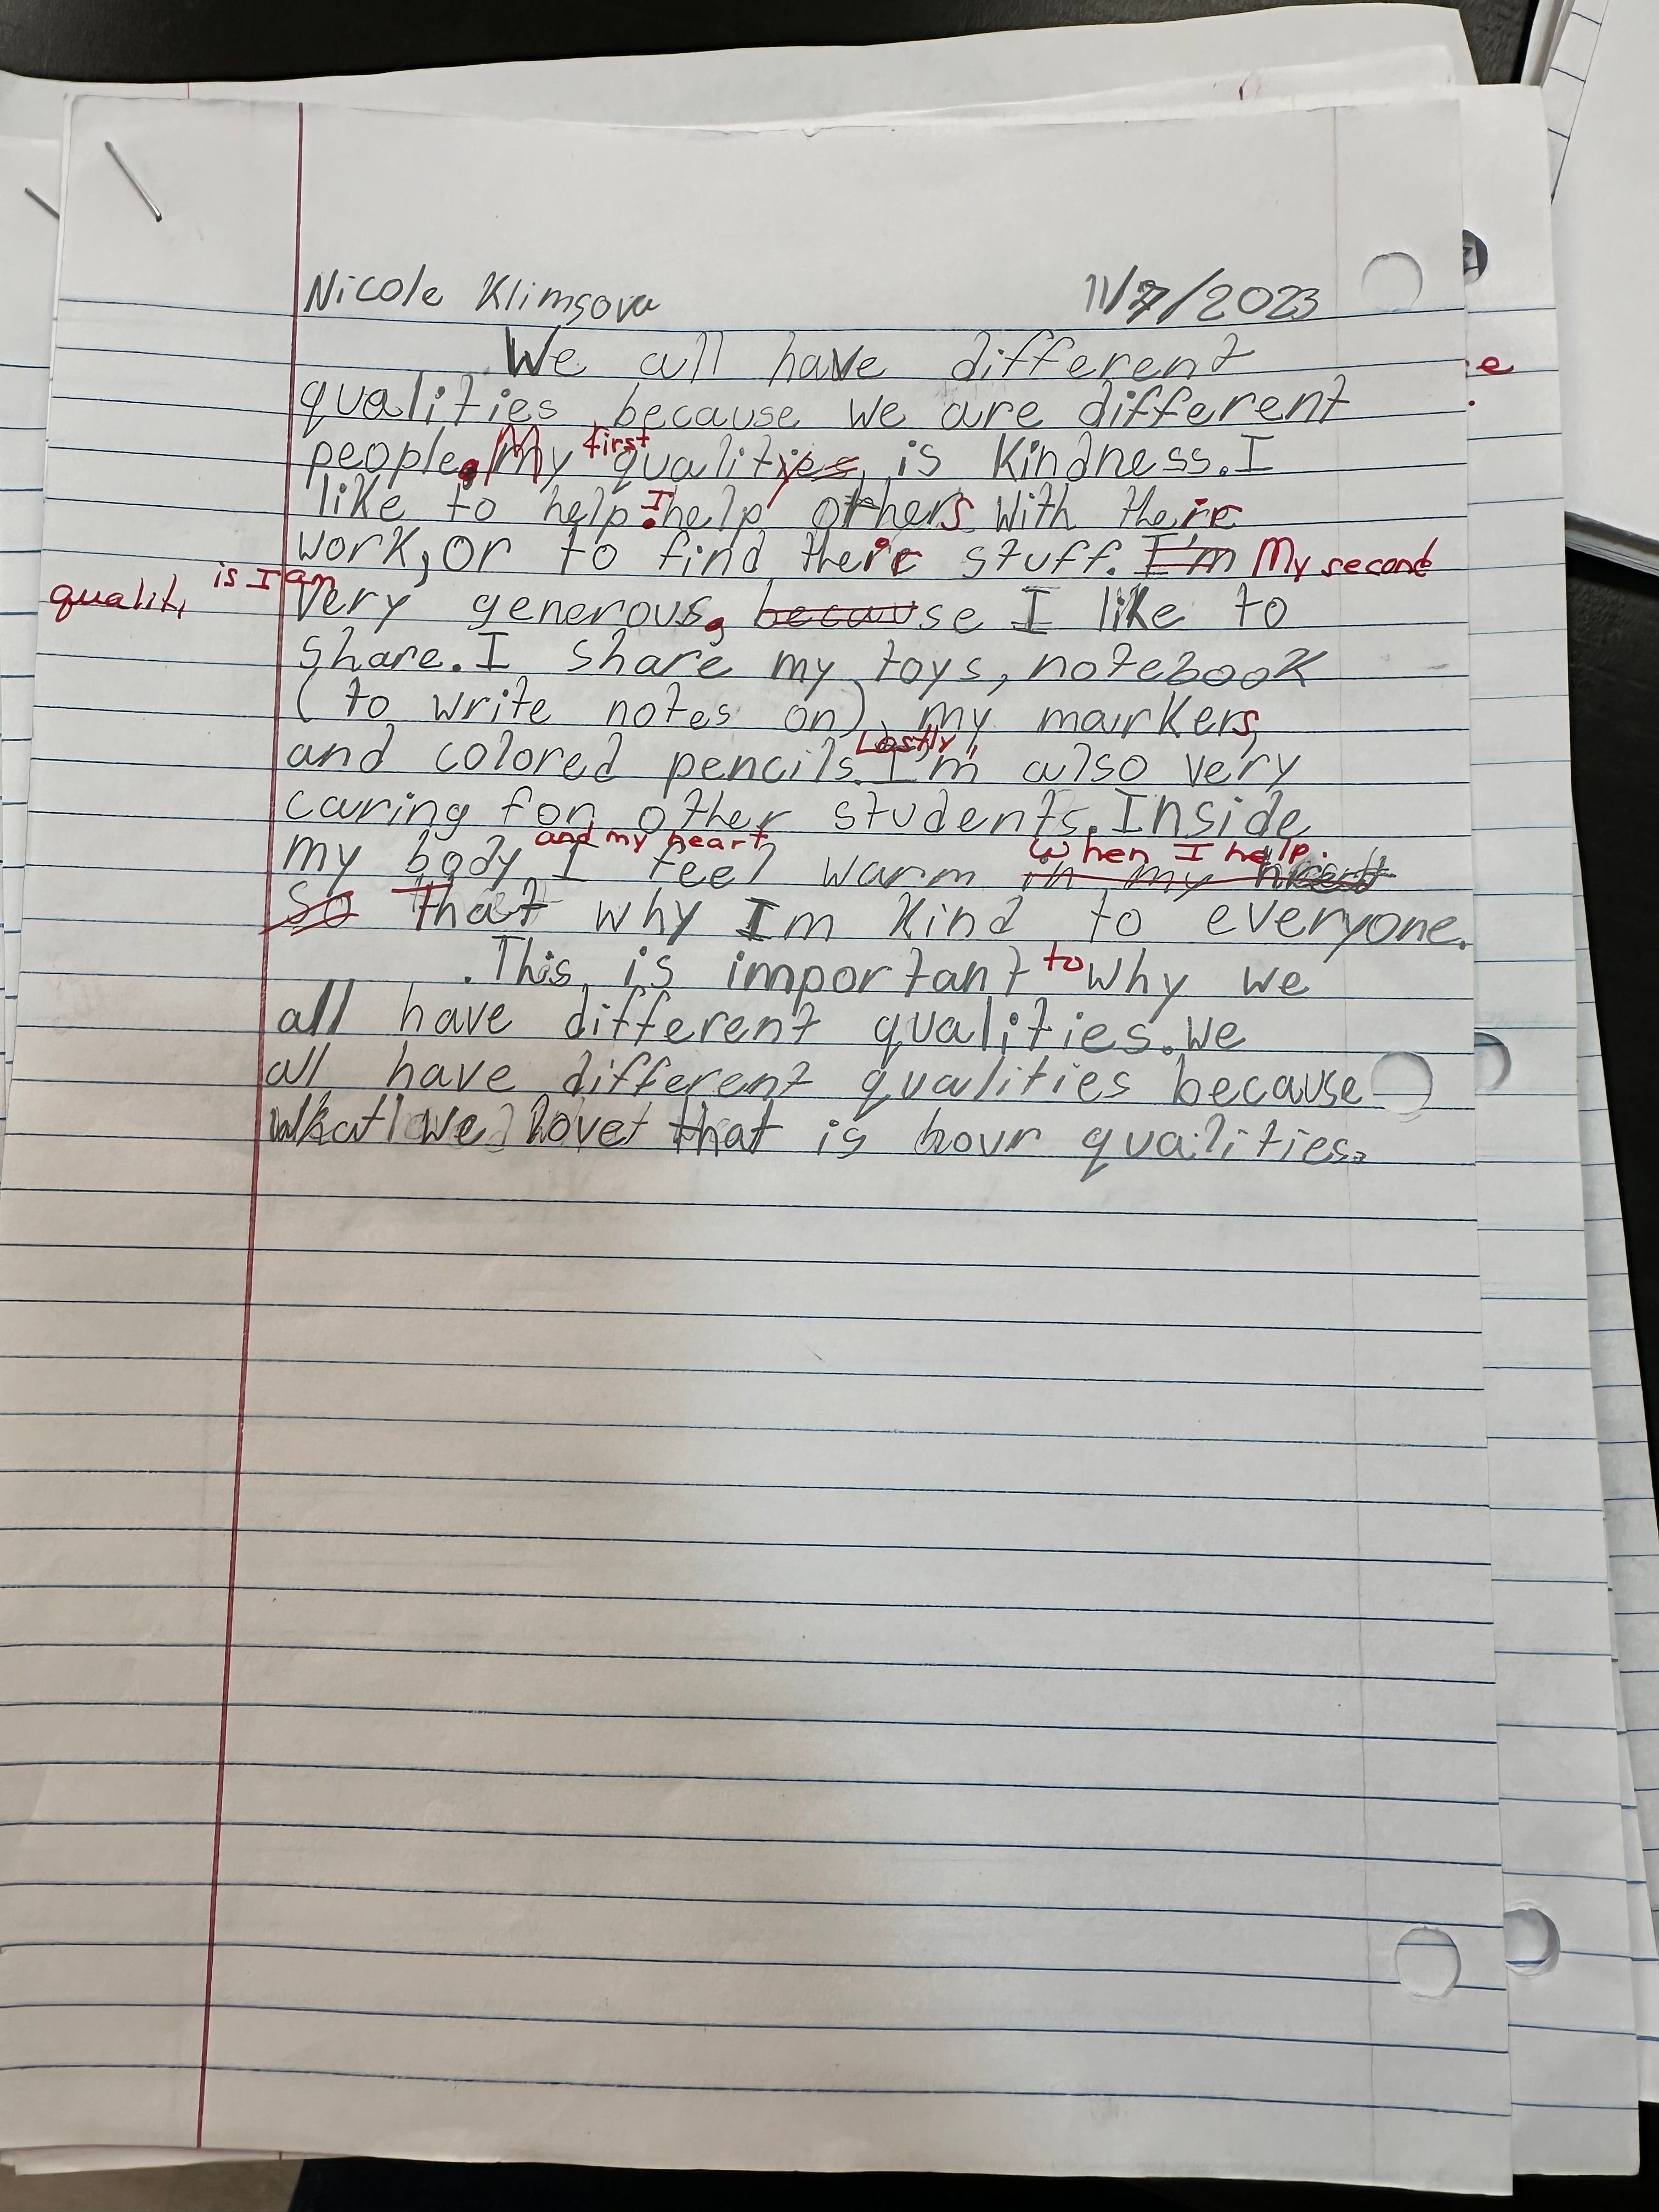 Nicole Klimsova 11/7/2023
We all have different
e
qualities because we are different
people. My first qualityies, is kindness. I
like to help. I help others with their
work, or to find their stuff. I'm My second
qualiti is I am very generous, because I like to
share. I share my toys, notebook
( to write notes on), my markers,
and colored pencils. Lastly, I'm also very
caring for other students. Inside
my body and my heart I feel warm in my heart when I help.
So That why Im kind to everyone.
.This is important to why we
all have different qualities. We
all have different qualities because
what we that is hour qualities.